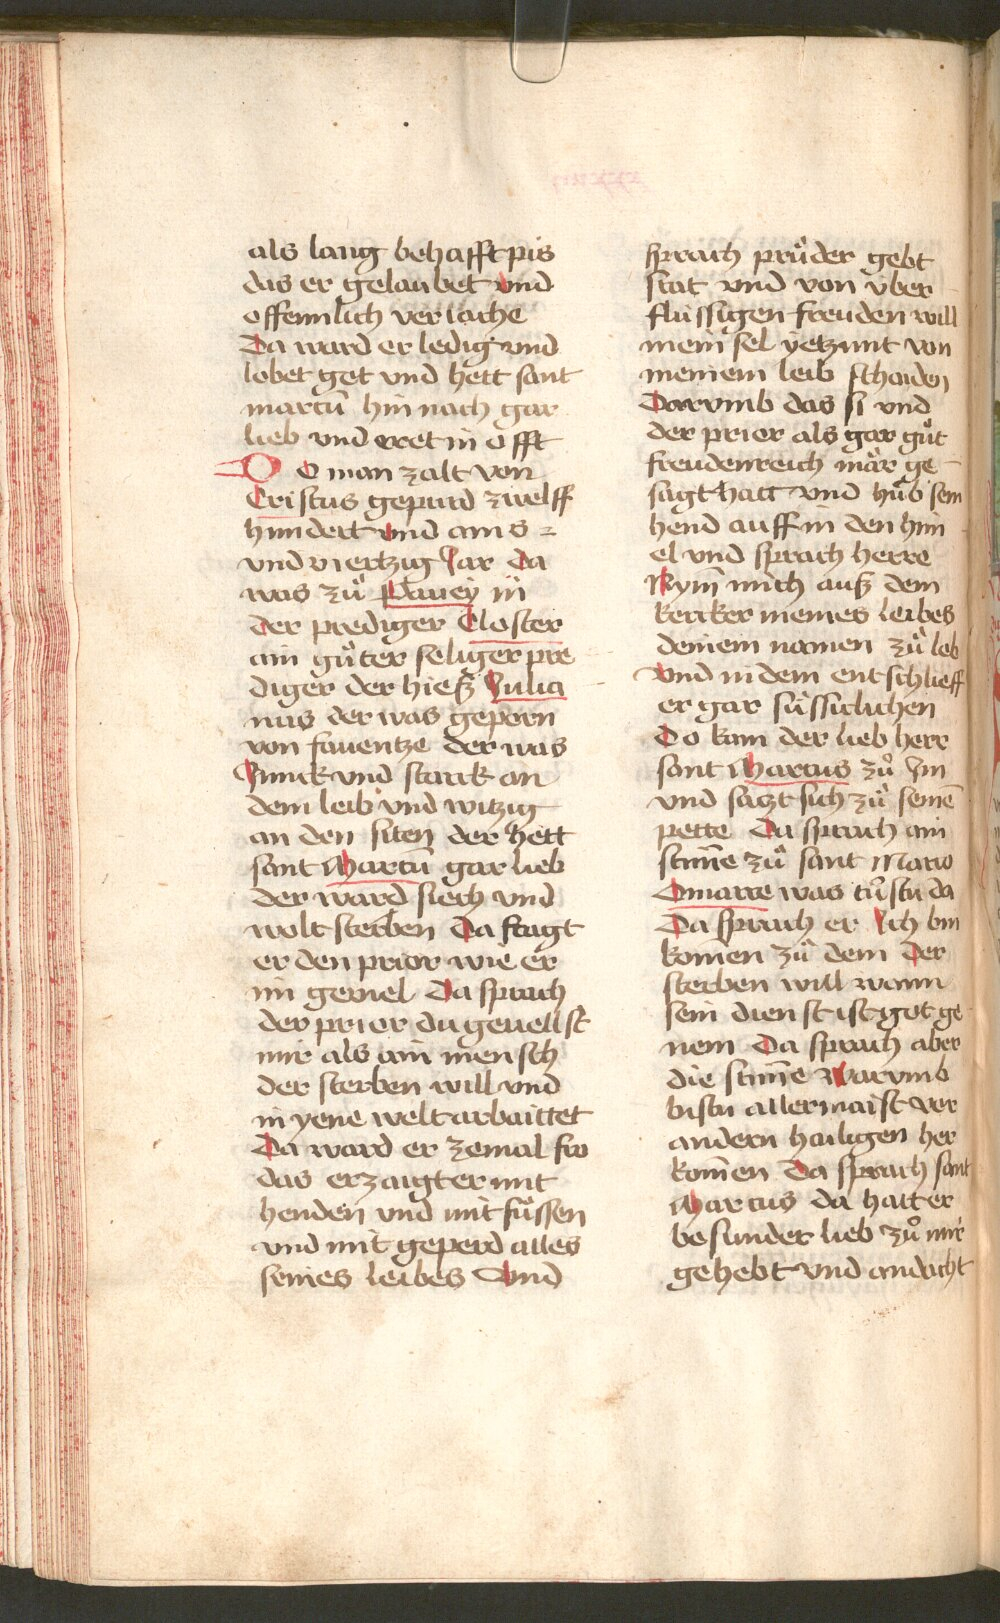 als lang behafft pis
das er gelaubet vnd
offennlich veriache
Da ward er ledig vnd
lobet got vnd hett sant
martū hin nach gar
lieb vnd eret in offt
Do man zalt von
Cristus gepurd zwelff
hundert vnd ains =
vnd viertzig Jar da
was zuͦ Pauey in
der prediger Closter
ain guͦter seliger pre
diger der hieß Julia
nus der was geporn
von fauentze der was
Junck vnd starck an
dem leib vnd witzig
an den siten der hett
sant Martū gar lieb
der ward siech vnd
wolt sterben Da fragt
er den prior wie er
im geuiel Da sprach
der prior du geuellst
mir als ain mensch
der sterben will vnd
in yene welt arbaittet
Da ward er zemal fro
das erzaigt er mit
henden vnd mit fuͤssen
vnd mit geperd alles
seines leibes Vnd
sprach pruͤder gebt
stat vnd von vber
flussigen freuden will
mein sel yetzunt von
meinem leib schaiden
Darvmb das si vnd
der prior als gar guͦt
freudenreich maͤr ge-
sagt hatt vnd huͦb sein
hend auff in den him
el vnd sprach herre
Nym̄ mich auß dem
kercker meines leibes
deinem namen zuͦ lob
Vnd in dem entschlieff
er gar sussiclichen
Do kam der lieb herr
sant Marcus zuͦ Im
vnd sàzt sich zuͦ seinē
pette Da sprach ain
stim̄e zuͦ sant Marco
O marce was tuͦstu da
Da sprach er Ich bin
kom̄en zuͦ dem Der
sterben will wann
sein dienst ist got ge
nem Da sprach aber
die stim̄e Warvmb
bistu allermaist ver
andern hailigen her
kom̄en Da sprach sant
Marcus da hatt er
besunder lieb zuͦ mir
gehebt vnd andacht